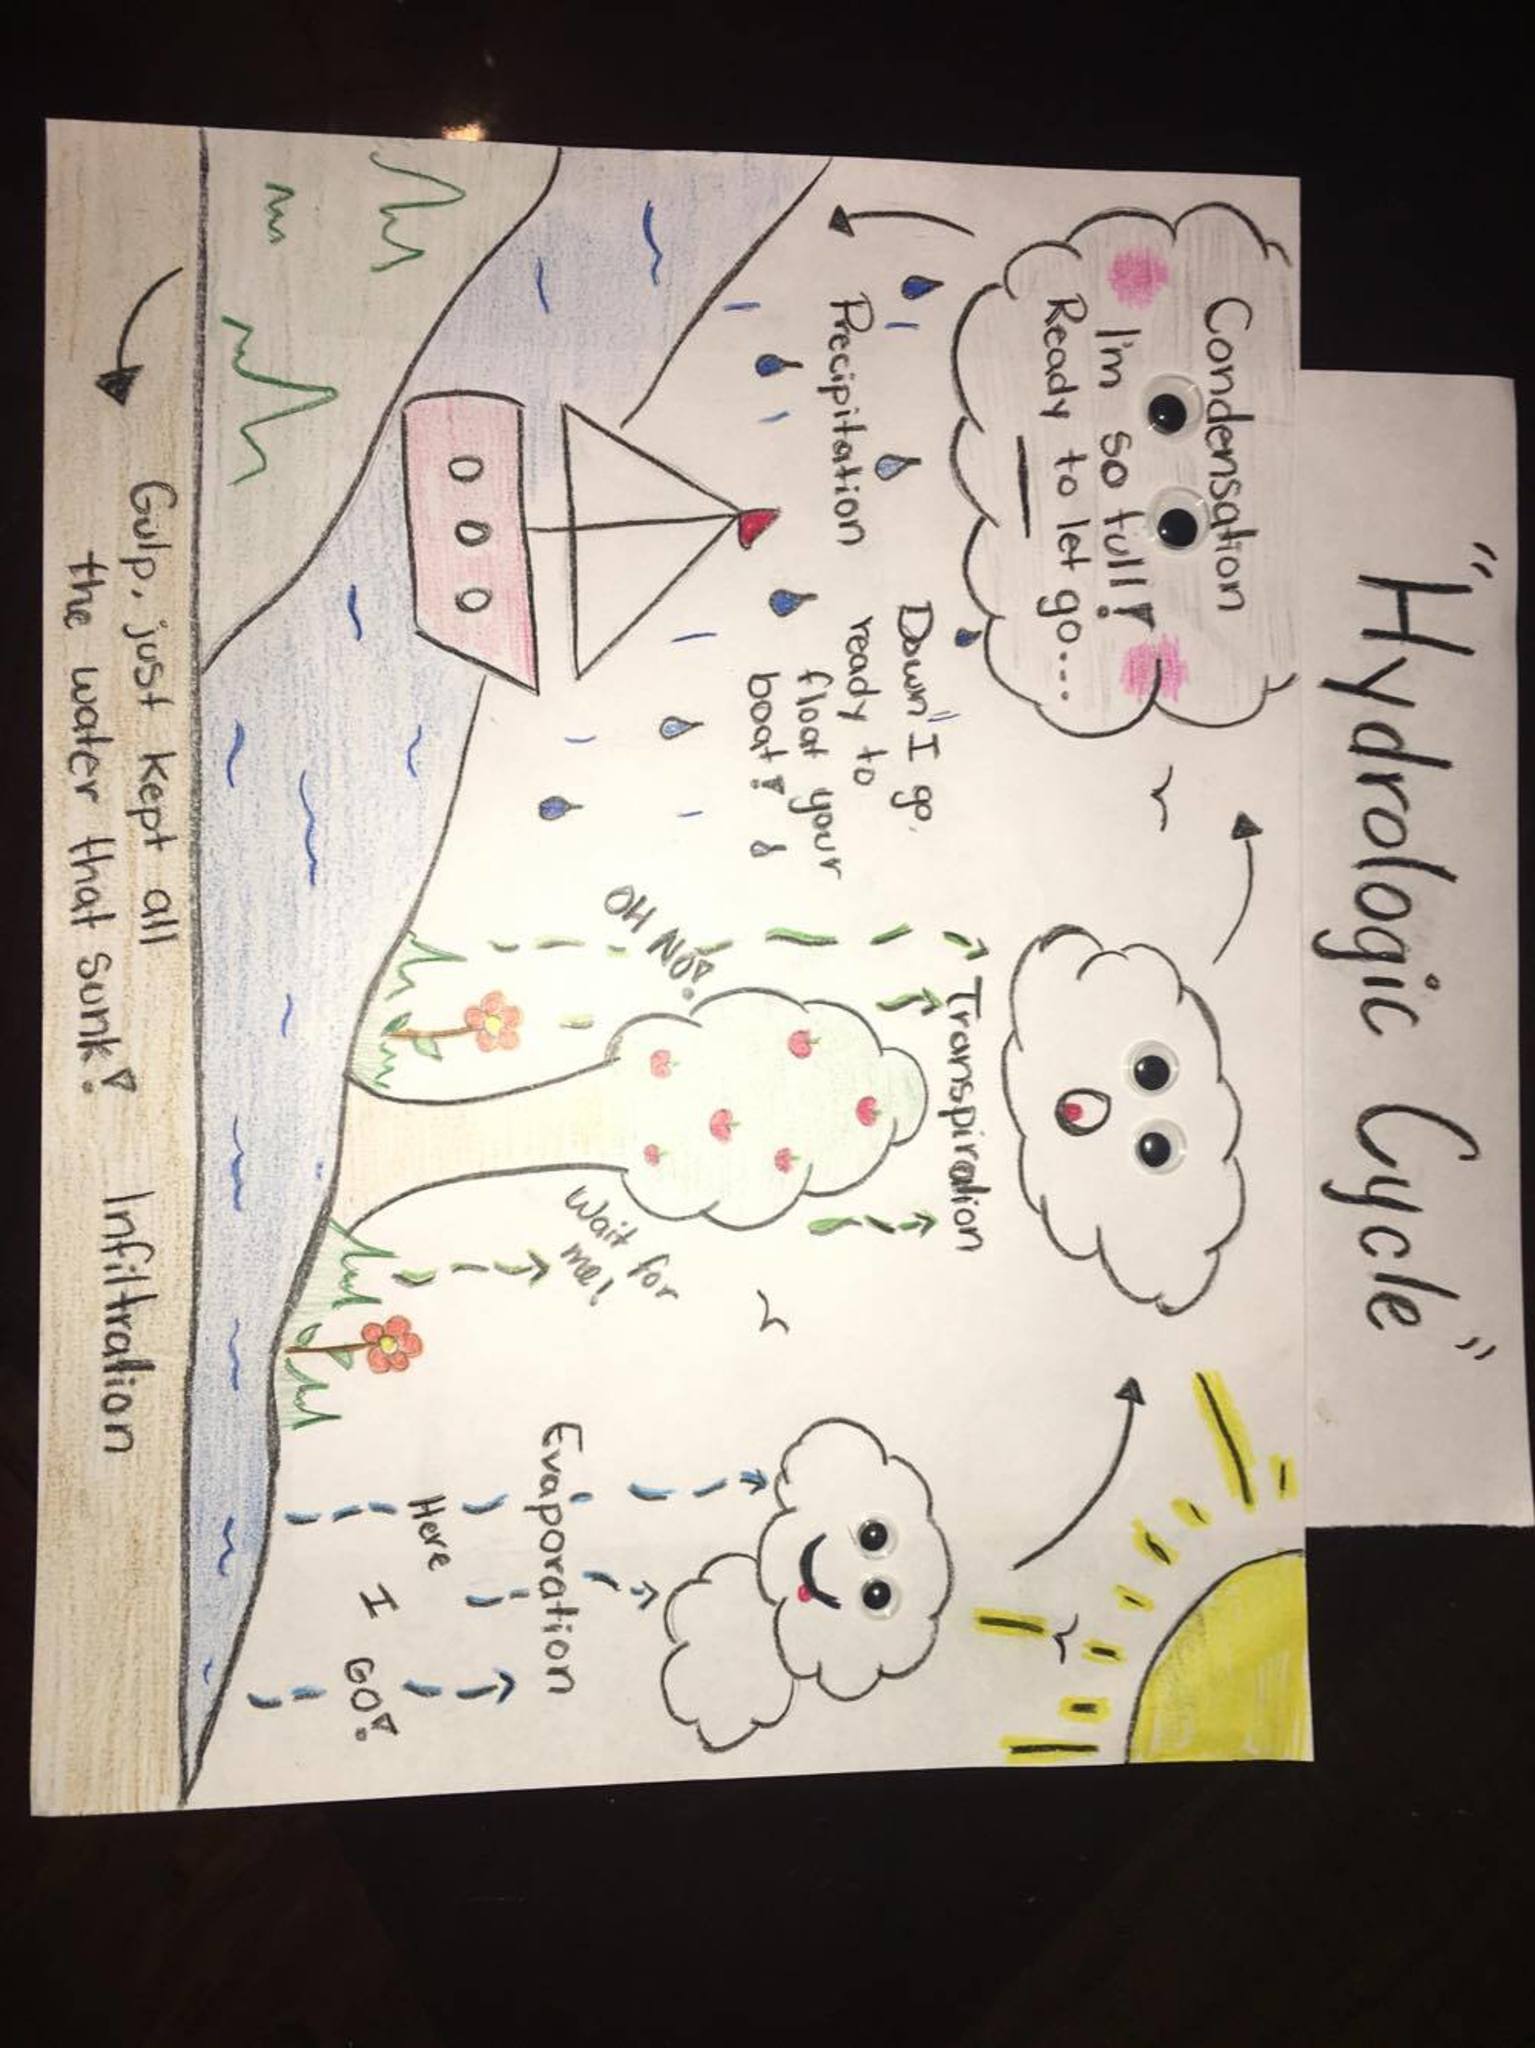 "Hydrologic Cycle"
Condensation
I'm so full!
Ready to let go...
Precipitation
Down I go,
ready to
float your
boat!
OH NO!
Transpiration
Wait for
me!
Evaporation
Here
I
GO!
Gulp, just kept all
the water that sunk!
Infiltration